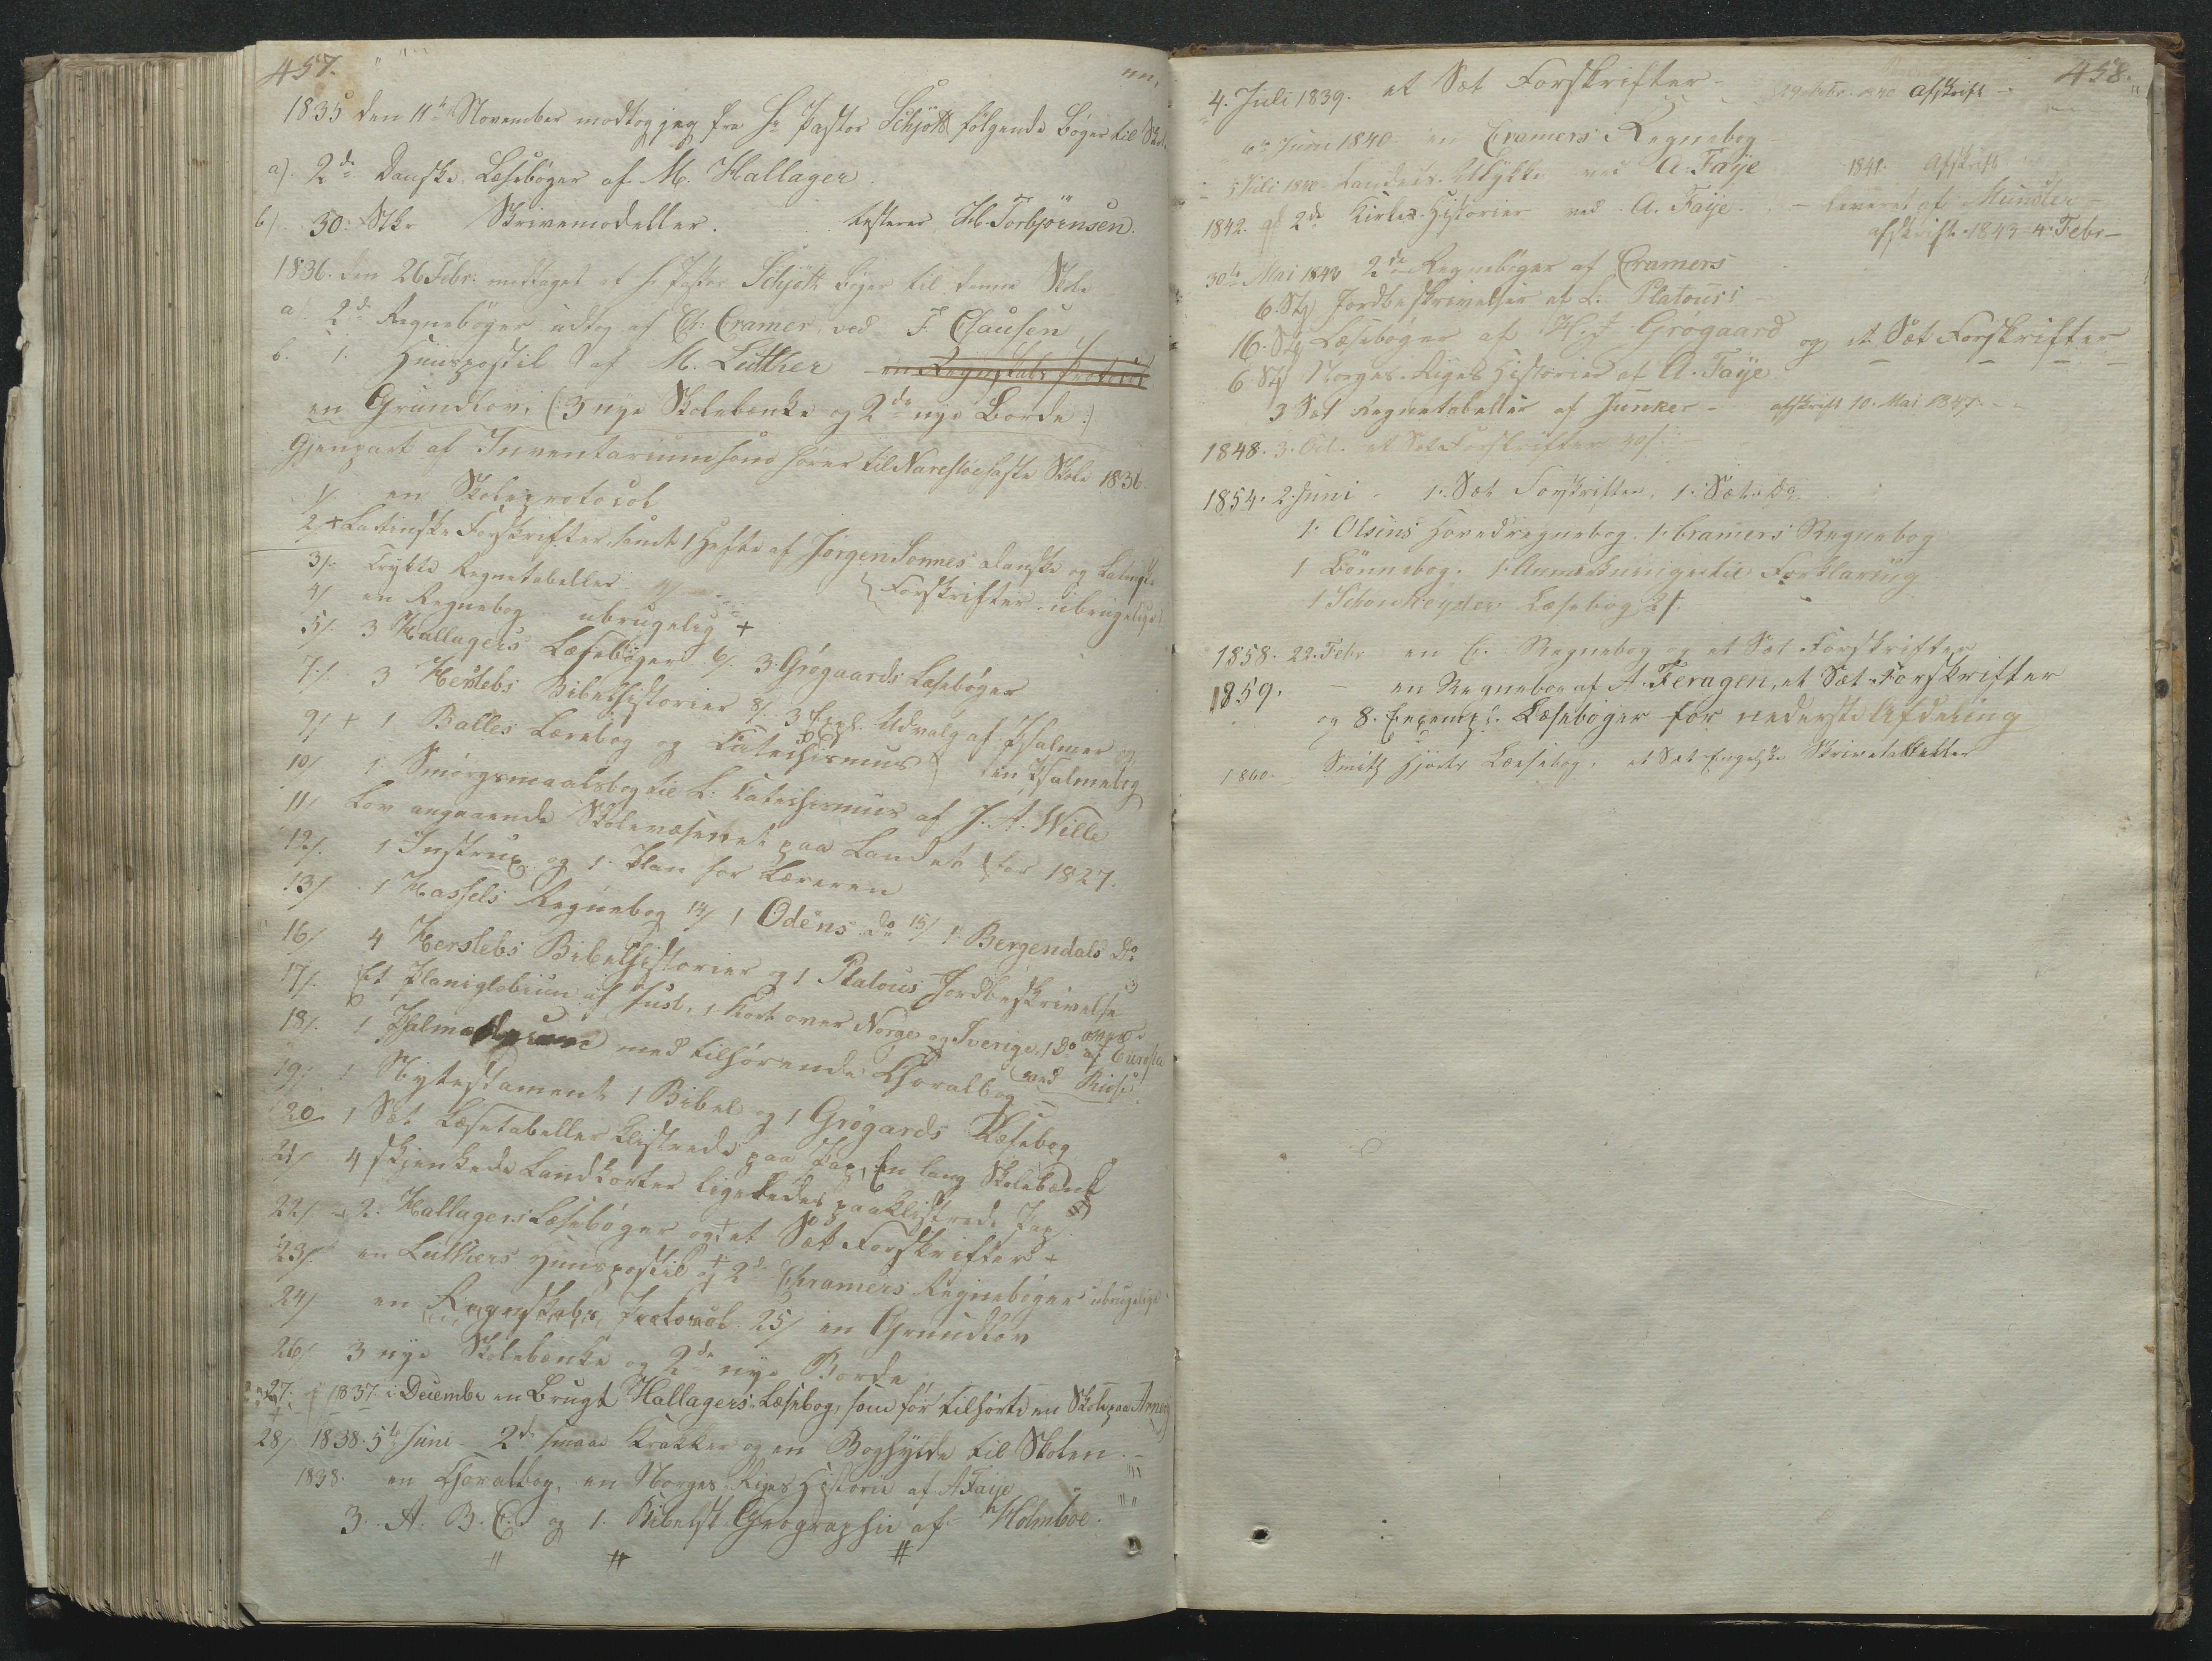 457.
1835 den 11te November modtog jeg fra Hr Pastor Schjött følgende Bøger til
a). 2de Danske Læsebøger af M. Hallager.
b). 30. Stkr Skrivemodeller. testerer Torbjörnsen.
1836. den 26 Febr. modtaget af Hr Pastor Schjött Bøger til denne Skole
a. 2de Regnebøger udtog af Ch: Cramer ved F. Clausen
b. 1. Huuspostil af M. Luther en Regnskabs Protocol
en Grundlov; (: 3 nye Skolebænke og 2de nye Borde :)
Gjenpart af Inventarium som hører til Narestøe faste Skole 1836.
1/. en Skoleprotocol
2 + Latinske Forskrifter, samt 1 Hefte af Jørgen Sonnes Danske og Latinske
3/. trykte Regnetabeller Forskrifter ubrugelige
4/ en Regnebog ubrugelig +
5/. 3 Hallagers Læsebøger 6/. 3 Grøgaards Læsebøger
7/. 3 Herslebs Bibelhistorier 8/. 3 Expl. Udvalg af Psalmer og
9/ + 1 Balles Lærebog og Catechismus en Psalmebog
10/ 1 Spørgsmaalsbog til L: Catechismus af J. A. Wille
11/ Lov angaaende Skolevæsenet paa Landet for 1827.
12/. 1 Instrux og 1. Plan for Læreren
13/. 1 Hassels Regnebog 14/ 1 Odens do 15/ 1. Bergendals do
16/ 4 Herslebs Bibelhistorier og 1 Platous Jordbeskrivelse
17/. Et Planiglobium af Jusl., 1 Kort over Norge og Sverige, 1 do af Europa
18/. 1 med tilhørende Choralbog ved
19/ 1 Nytestament 1 Bibel og 1 Grøgards Læsebog
20 1 Sæt Læsetabeller klistrede paa Pap, En lang Skolebænk
21/ 4 skjenkede Landkorter ligeledes paaklistrede Pap
22/ 2: Hallagers Læsebøger og et Sæt Forskrifter +
23/. en Luthers Huuspostil og 2de Chramers Regnebøger ubrugelige
24/ en Regnskabs Protocol. 25/ en Grundlov
26/ 3 nye Skolebænke og 2de nye Borde
27. 1837 i Decembr en Brugt Hallagers Læsebog, som før tilhørte en Skole paa
28/ 1838. 5te Juni 2de smaae Krakker og en Boghylde til Skolen. -
1838. en Choralbog, en Norges Riges Historie af A Faije
3. A. B. C. og 1. Bibelsk Geographie af Holmboe.
458.
4. Juli 1839. et Sæt Forskrifter - Afskrift -
Juni 1840 en Cramers Regnebog
5 Juli 1840 Landets Ulykke ved A. Faÿe 1841. Afskrift
1842. 2de Kirkes-Historier ved A. Faije. - leveret af Münster -
afskrift 1843 4 Febr -
30te Mai 2de Regnebøger af Cramers
6. Stk Jordbeskrivelser af L: Platous's
16. Stk Læsebøger af Grøgaard og et Sæt Forskrifter
6 Stk Norges-Riges Historier af A. Faÿe
3 Sæt Regnetabeller af Junker - afskrift 10. Mai 1847.
1848. 3. et Sæt Forskrifter
1854. 2. Juni - 1. Sæt Forskrifter, 1. Sæt do
1. Olsens Hovedregnebog. 1. Cramers Regnebog
1 Bönnebog. 1. Anmerkninger til Forklaring
1 Læsebog
1858. 22. Febr en C. Regnebog og et Sæt Forskrifter
1859. - en Regnebog af A. Feragen, et Sæt Forskrifter
og 8. Exempl. Læsebøger for nederste Afdeling
1860. Læsebog, et Sæt Engelske Skrivetabeller